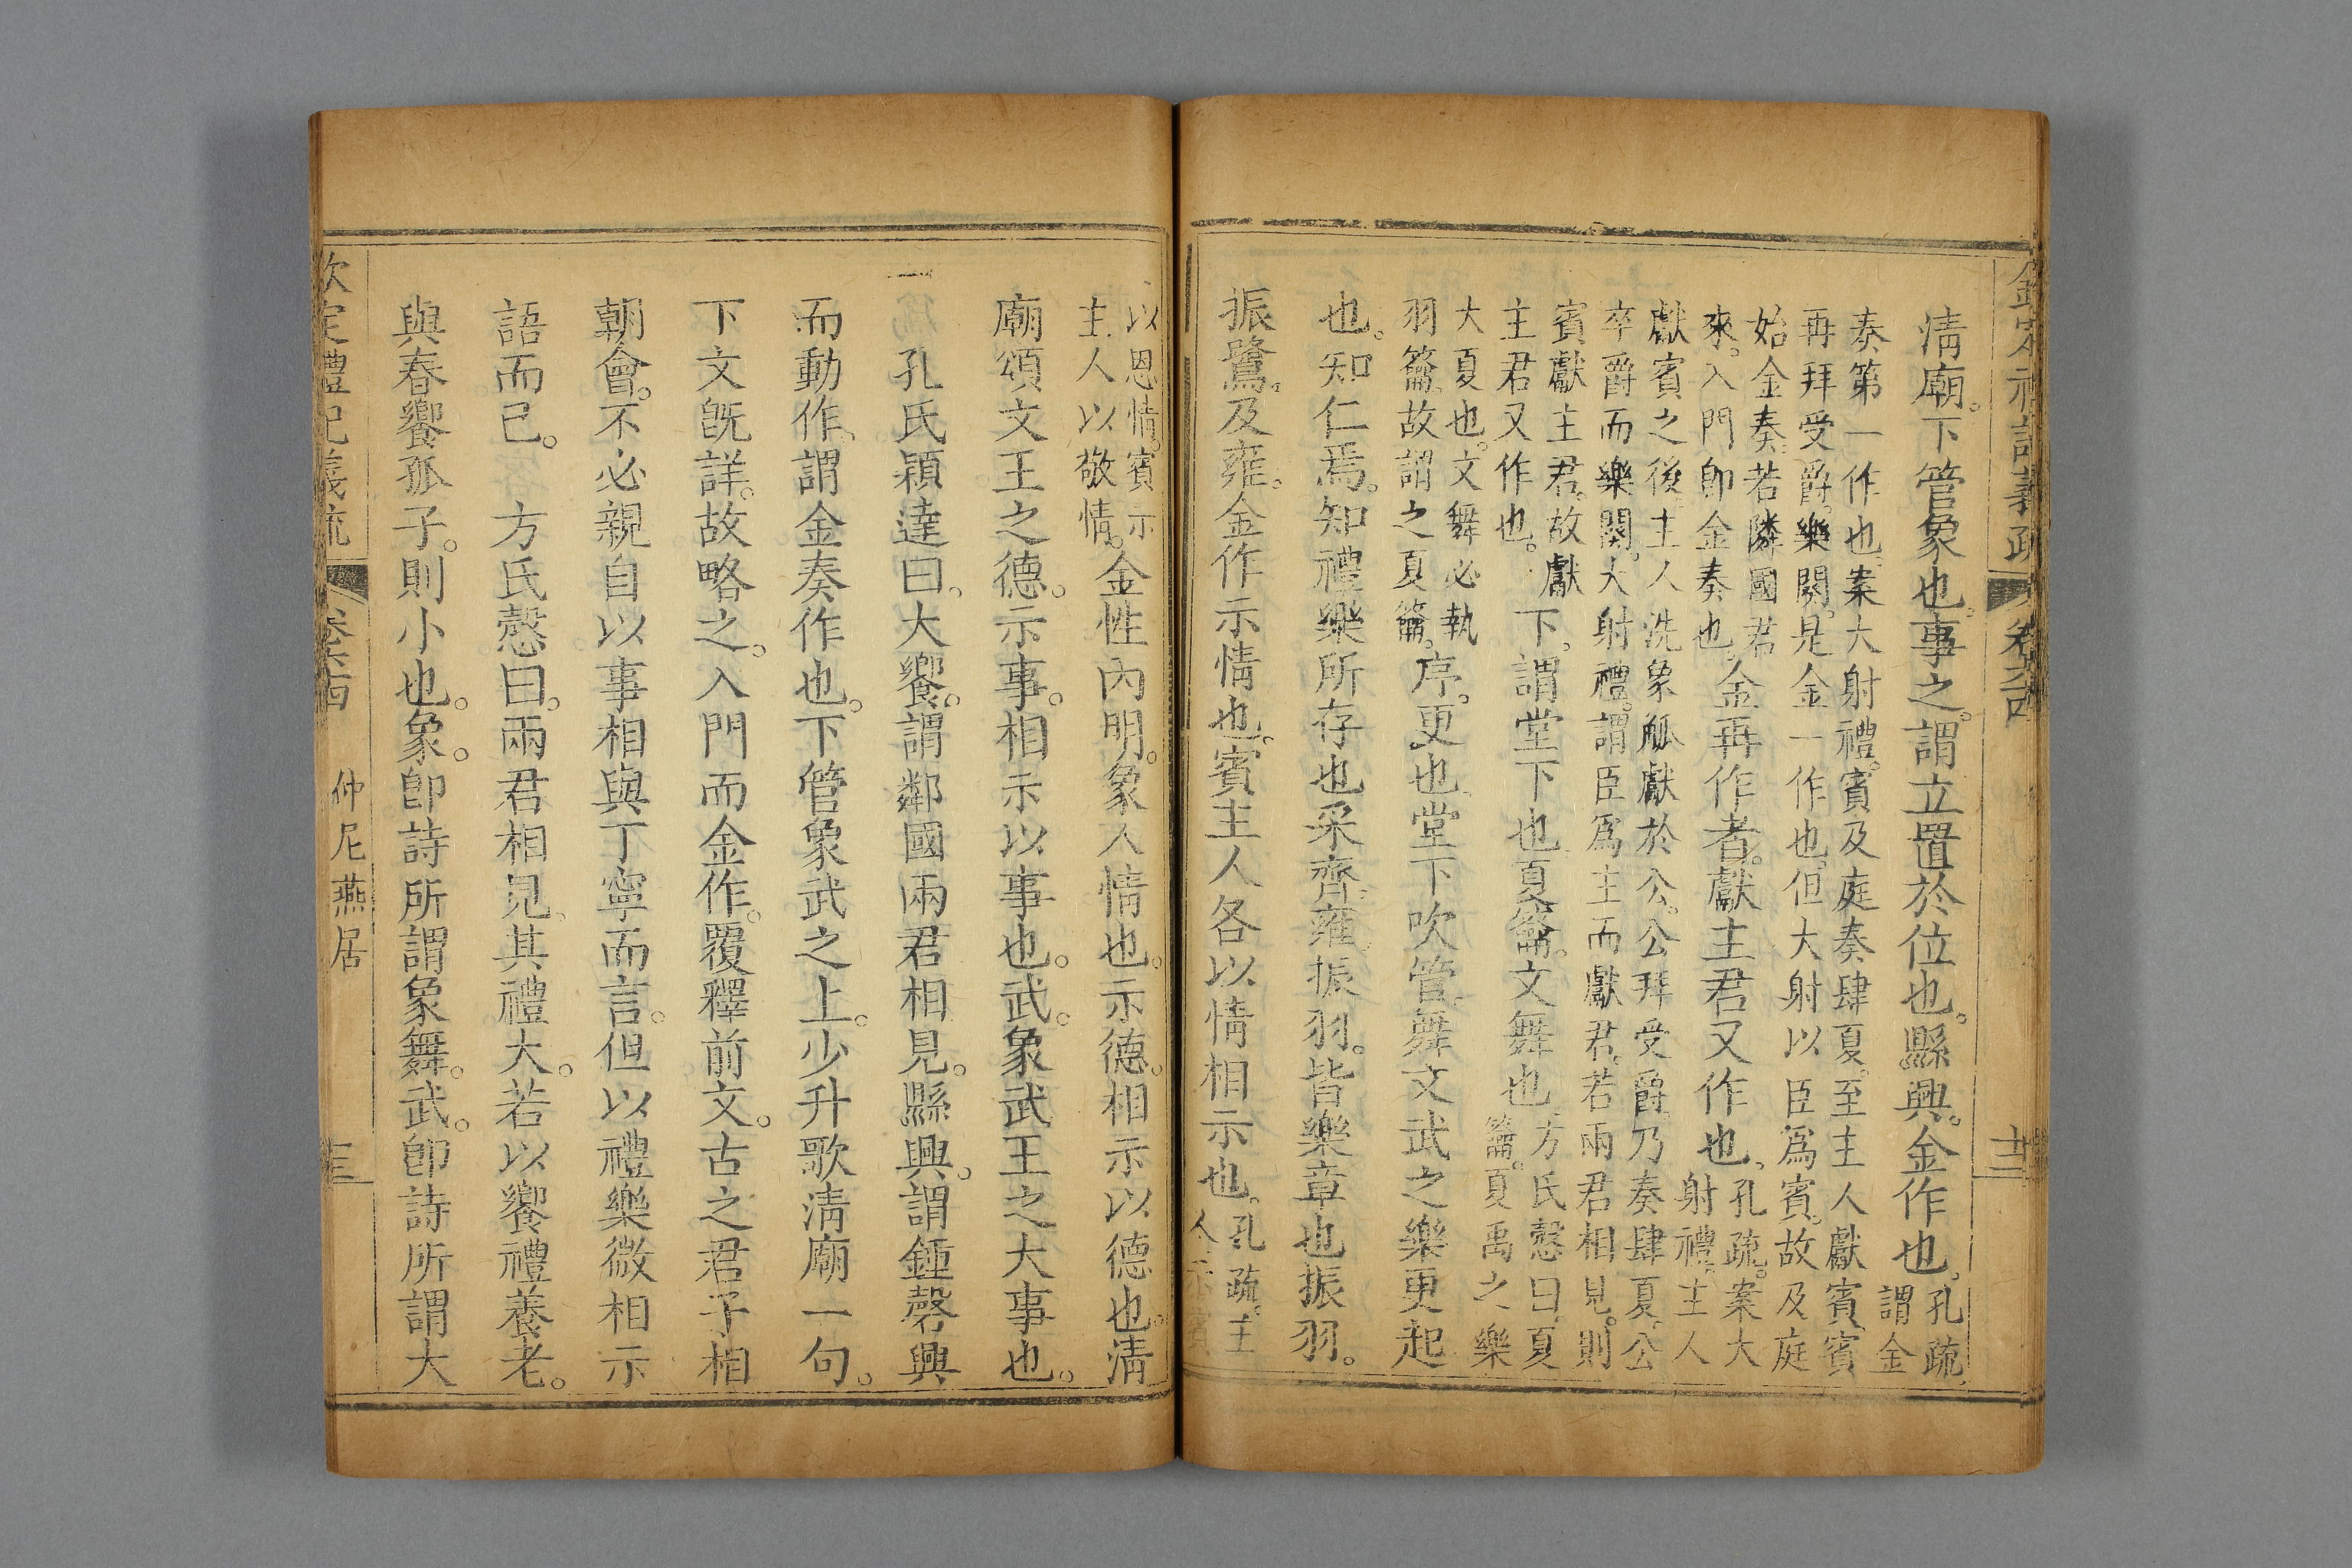 欽定禮記義疏 卷六十四 十三
清廟。下管象也。事之。謂立置於位也。縣興。金作也。孔疏。
謂金
奏第一作也。案大射禮。賓及庭奏肆夏。至主人獻賓。賓
再拜受爵。樂闋。是金一作也。但大射以臣爲賓。故及庭
始金奏。若隣國君
來。入門卽金奏也。金再作者。獻主君又作也。孔疏。案大
射禮。主人
獻賓之後。主人洗象觚獻於公。公拜受爵乃奏肆夏。公
卒爵而樂闋。大射禮。謂臣爲主而獻君。若兩君相見。則
賓獻主君。故獻
主君又作也。下。謂堂下也。夏籥。文舞也。方氏慤曰。夏
籥。夏禹之樂
大夏也。文舞必執
羽籥。故謂之夏籥。序。更也。堂下吹管。舞文武之樂更起
也。知仁焉。知禮樂所存也。采齊。雍。振羽。皆樂章也。振羽。
振鷺。及雍。金作示情也。賓主人各以情相示也。孔疏。主
人示賓
以恩情。賓示
主人以敬情。金性內明。象人情也。示德。相示以德也。清
廟頌文王之德。示事。相示以事也。武。象武王之大事也。
孔氏穎達曰。大饗。謂鄰國兩君相見。縣興。謂鍾磬興
而動作。謂金奏作也。下管象武之上。少升歌清廟一句。
下文旣詳。故略之。入門而金作。覆釋前文。古之君子相
朝會。不必親自以事相與丁寧而言。但以禮樂微相示
語而已。 方氏慤曰。兩君相見。其禮大。若以饗禮養老。
與春饗孤子。則小也。象。卽詩所謂象舞。武。卽詩所謂大
欽定禮記義疏 卷六十四 仲尼燕居 十三